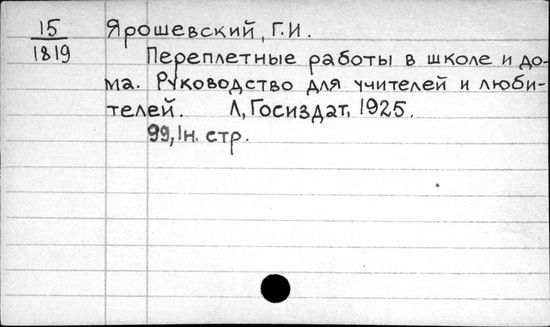 15 Ярошевский, Г.И.
1819 Переплетные работы в школе и до-
ма. Руководство для учителей и люби-
телей. Л, Госиздат, 1925.
99, 1н. стр.